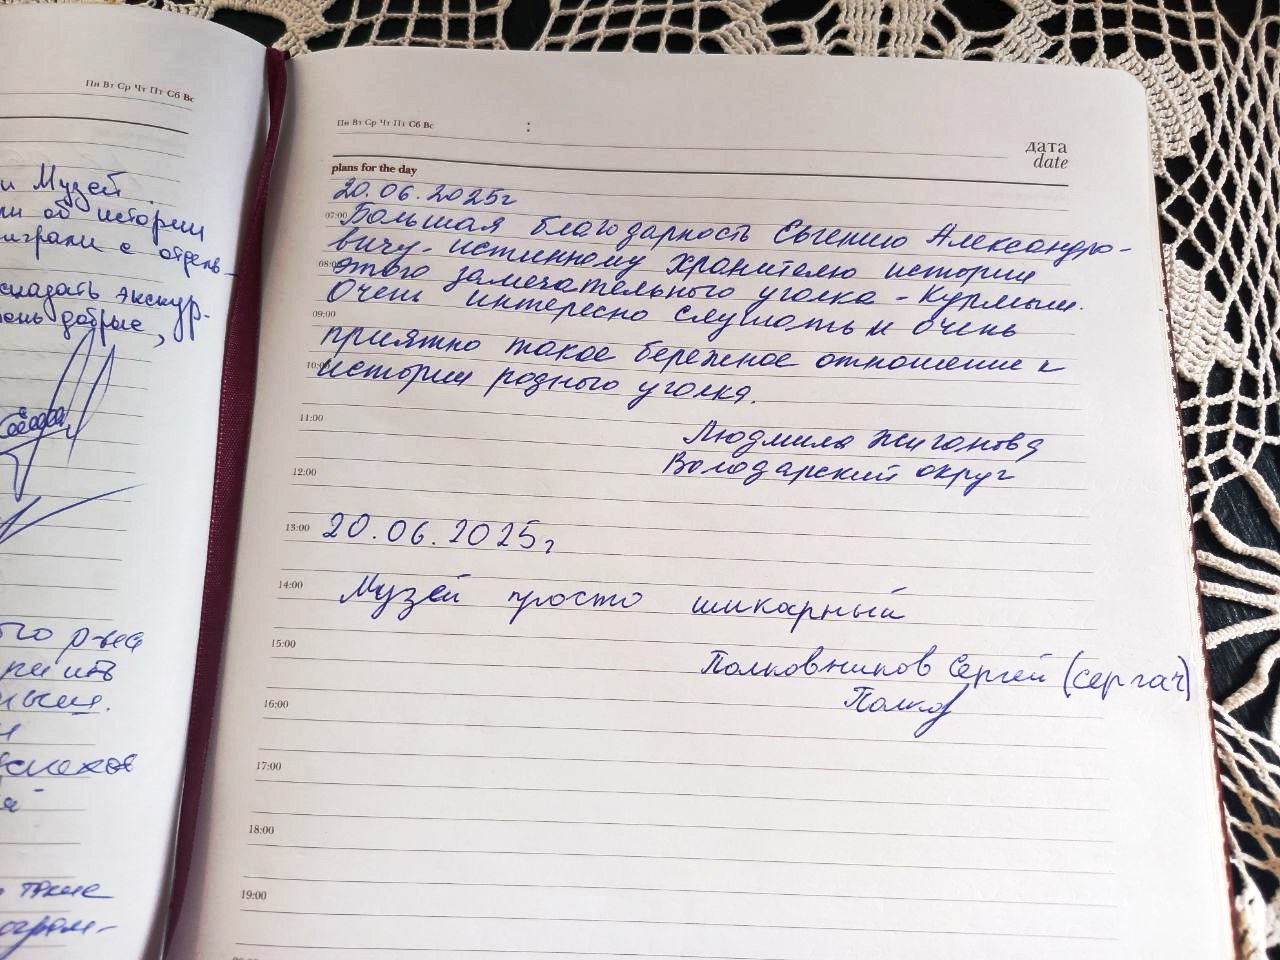 Пн Вт Ср Чт Пт Сб Вс
и Музей
ли об истории
играли с отдель-
сказать экскур-
ень добрые,
ого р-на
Пн Вт Ср Чт Пт Сб Вс
:
дата
date
plans for the day
20.06.2025г
07:00
Большая благодарность Евгению Александро-
вичу - истинному хранителю истории
08:00
этого замечательного уголка - Курмыш.
Очень интересно слушать и очень
09:00
приятно такое бережное отношение к
10:00
истории родного уголка.
11:00
Людмила Жиганова
Володарский округ
12:00
13:00
20.06.2025г
14:00
Музей просто шикарный
15:00
Полковников Сергей (сергач)
16:00
17:00
18:00
19:00